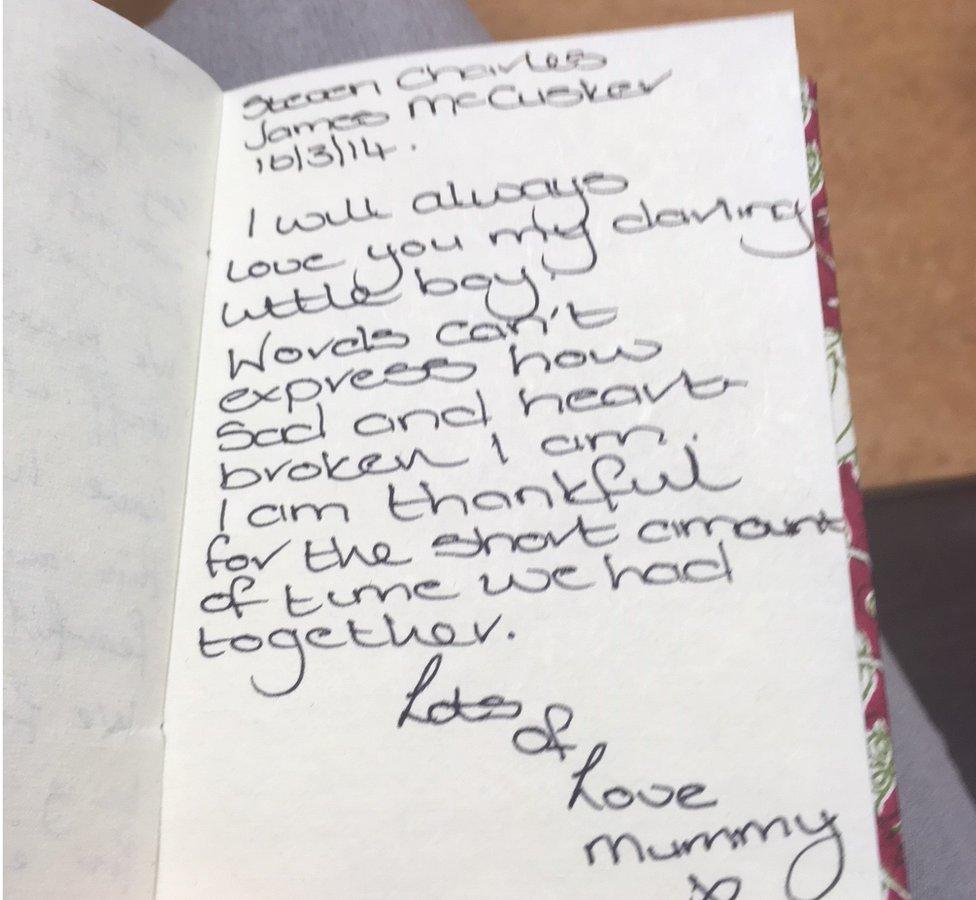 Steven Charles
James McCusker
16/3/14.
I will always
love you my darling
little boy!
Words can't
express how
sad and heart
broken I am.
I am thankful
for the short amount
of time we had
together.
Lots
of
Love
Mummy
x